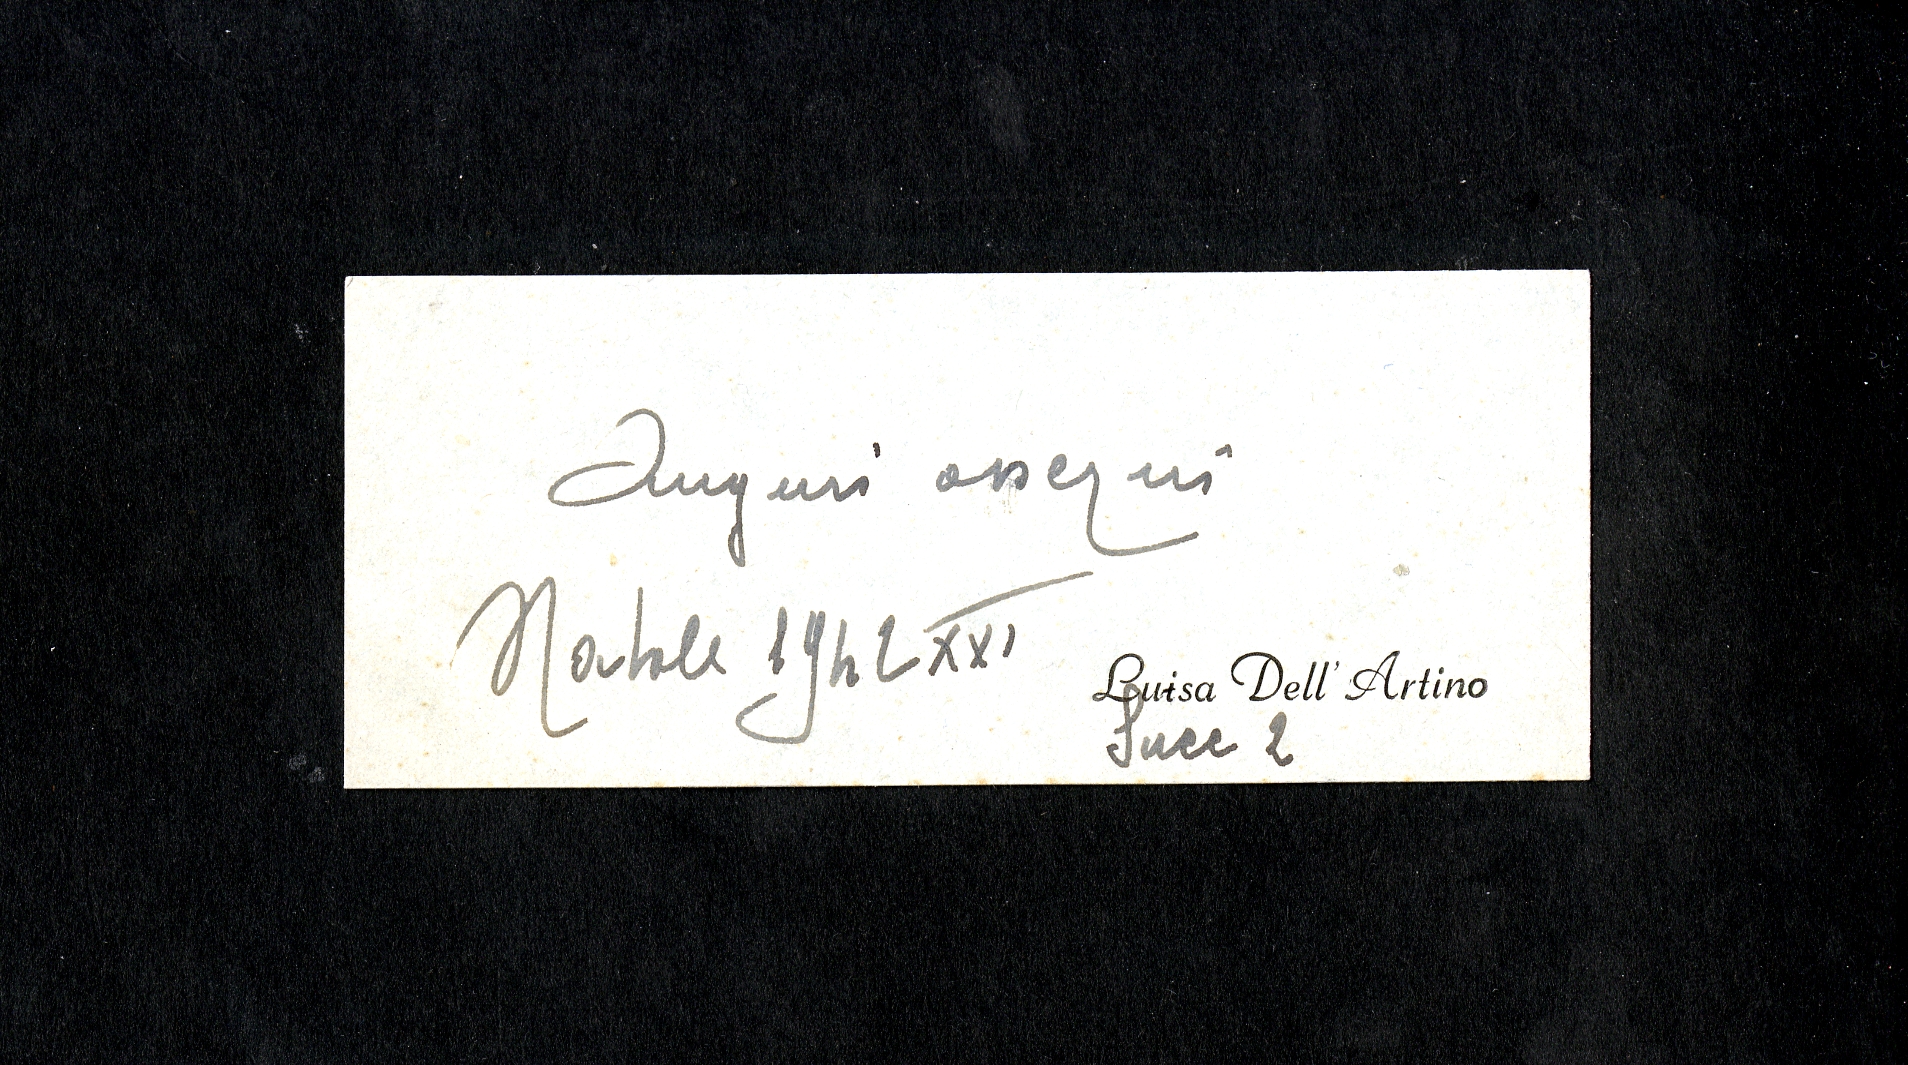 Auguri ossequi
Natale 1942 XXI
Luisa Dell' Artino
Succ 2